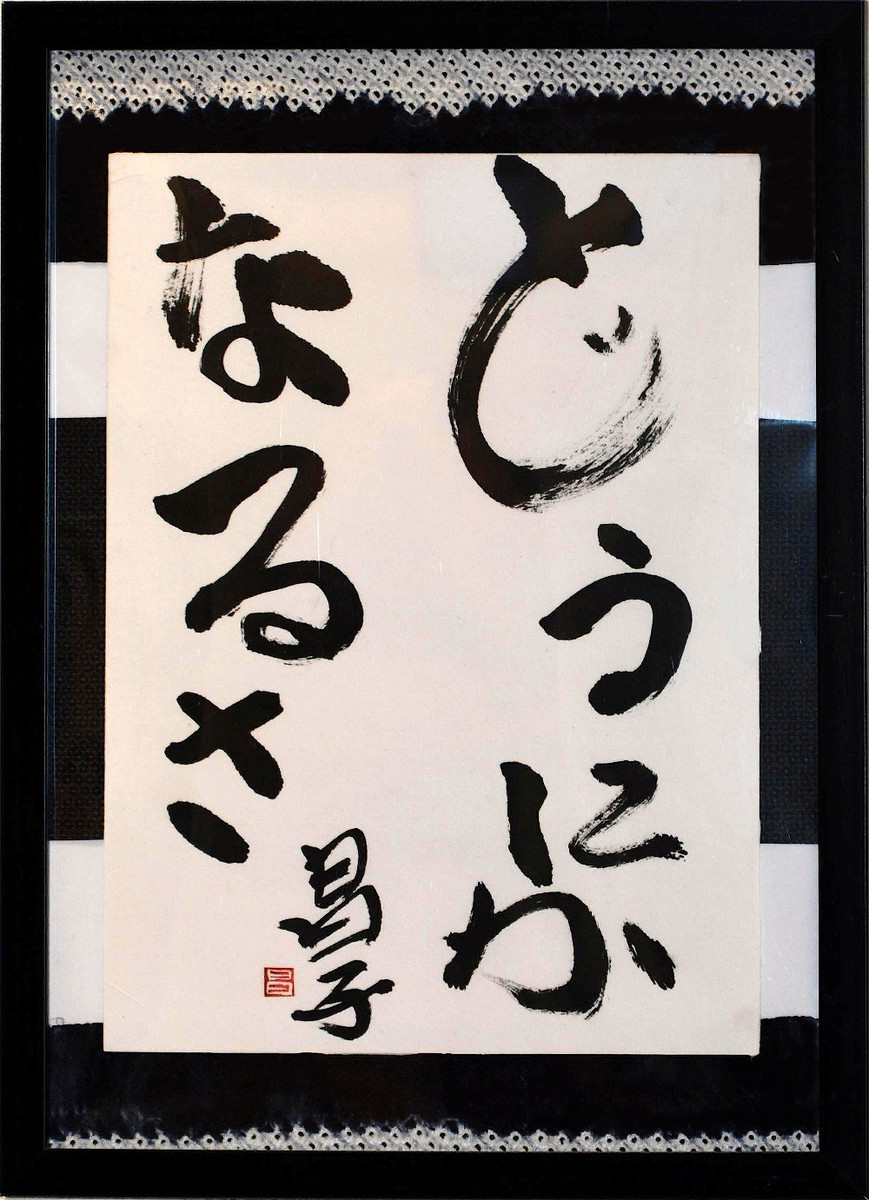 どうにか
なるさ
昌子
昌